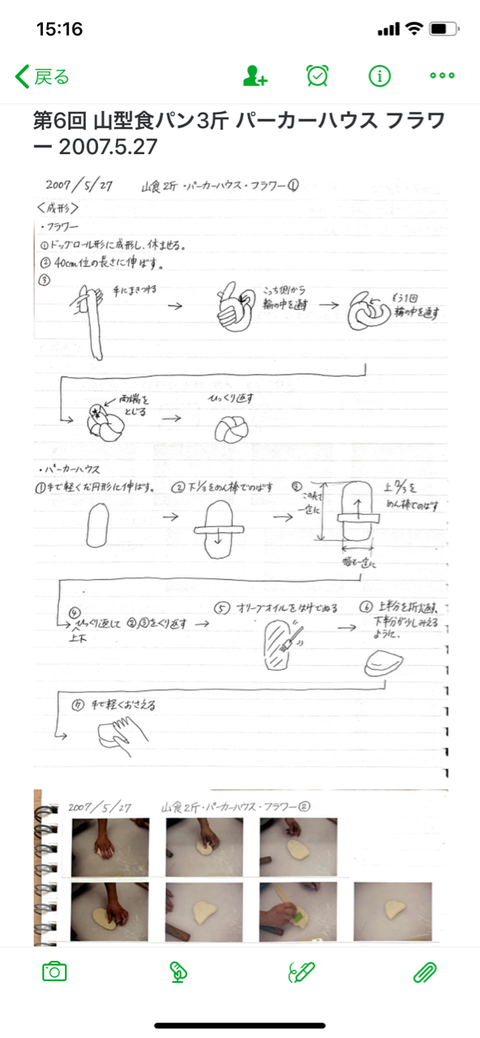 15:16
戻る
第6回 山型食パン3斤 パーカーハウス フラワ
ー 2007.5.27
2007/5/27 山食2斤・パーカーハウス・フラワー①
<成形>
・フラワー
①ドッグロール形に成形し、休ませる。
②40cm位の長さに伸ばす。
③
手にまきつける
こっち側から
輪の中を通す
もう1回
輪の中を通す
両端を
とじる
ひっくり返す
・パーカーハウス
①手で軽くだ円形に伸ばす。
②下1/3をめん棒でのばす
③
一定に
上2/3を
めん棒でのばす
幅も一定に
④
ひっくり返して ②③をくり返す
上下
⑤ オリーブオイルをはけでぬる
⑥ 上半分を折り返す。
下半分が少しみえる
ように。
⑦ 手で軽くおさえる
2007/5/27 山食2斤・パーカーハウス・フラワー②